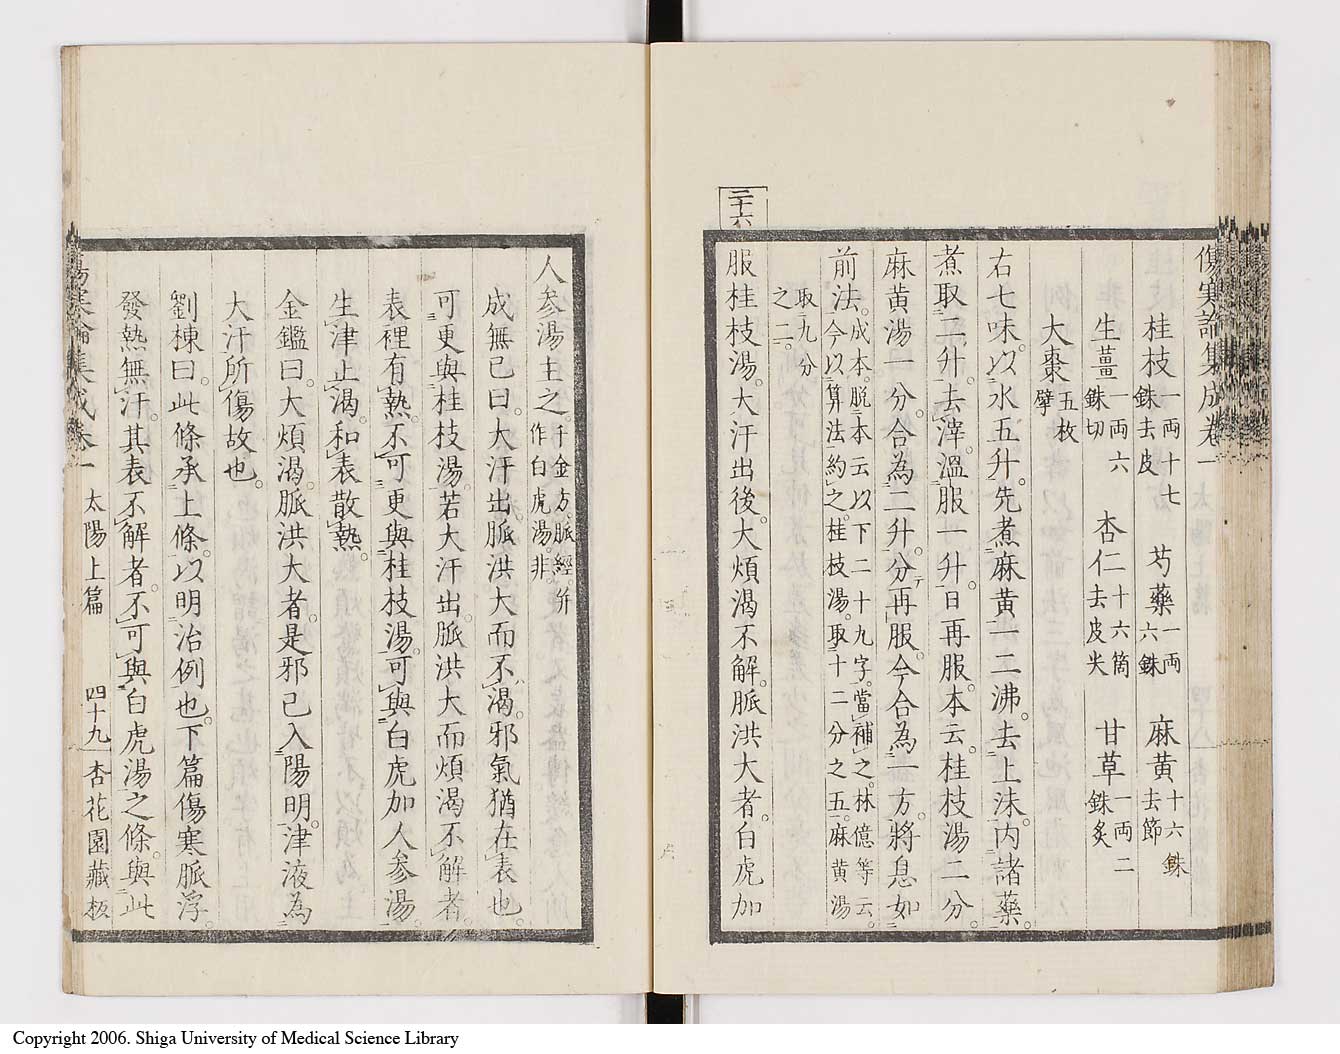 傷寒論集成卷一
桂枝一両十七銖去皮 芍藥一両六銖 麻黄十六銖去節
生薑一両六銖切 杏仁二十六箇去皮尖 甘草一両二銖炙
大棗五枚擘
右七味。以水五升。先煮麻黄一二沸。去上沫。内諸藥。
煮取二升。去滓。溫服一升。日再服。本云。桂枝湯二分。
麻黄湯一分。合為二升。分再服。今合為一方。將息如
前法。成本。脱本云以下二十九字。當補之。林億等云。
今以算法約之。桂枝湯。取十二分之五。麻黄湯
取九分
之二。
二十六
服桂枝湯。大汗出後。大煩渴不解。脈洪大者。白虎加
人參湯主之。千金方。脈經。并
作白虎湯。非。
成無已曰。大汗出。脈洪大而不渴。邪氣猶在表也。
可更與桂枝湯。若大汗出。脈洪大而煩渴不解者。
表裡有熱。不可更與桂枝湯。可與白虎加人參湯。
生津止渴。和表散熱。
金鑑曰。大煩渴。脈洪大者。是邪已入陽明。津液為
大汗所傷故也。
劉棟曰。此條承上條。以明治例也。下篇傷寒脈浮。
發熱無汗。其表不解者。不可與白虎湯之條。與此
傷寒論集成卷一 太陽上篇 四十九 杏花園藏板
Copyright 2006. Shiga University of Medical Science Library